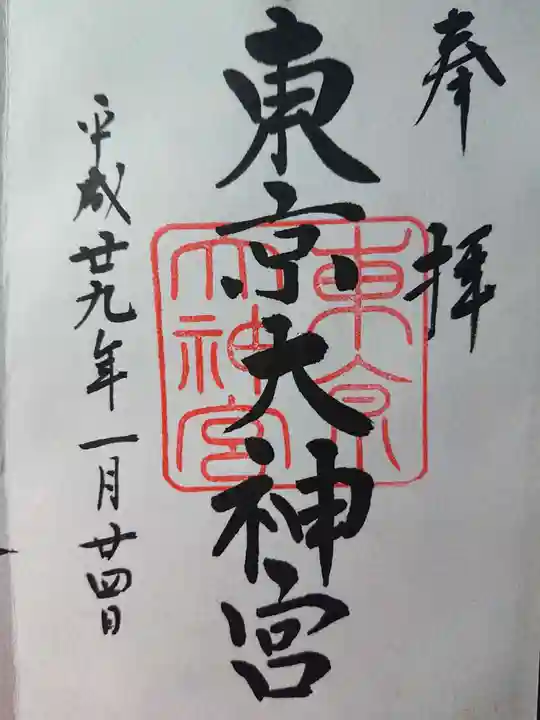 奉拝
東京大神宮
東京大神宮
平成廿九年一月廿四日